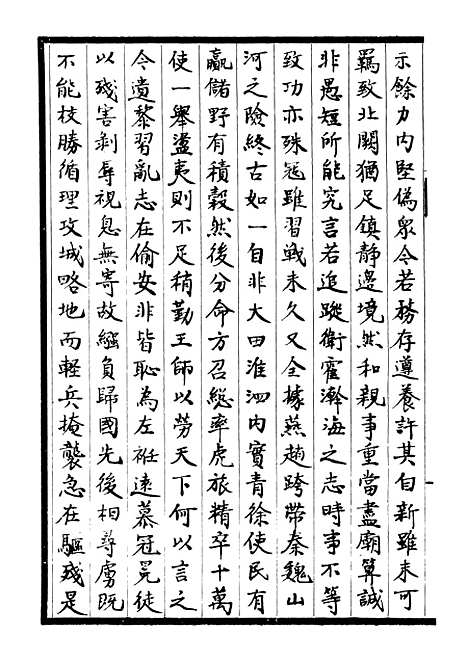 示餘力内堅偽衆今若務存遵養許其自新雖未可
羈致北闕猶足鎮静邊境然和親事重當盡廟算誠
非愚短所能究言若追蹤衛霍瀚海之志時事不等
致功亦殊寇雖習戰未久又全據燕趙跨帶秦魏山
河之險終古如一自非大田淮泗内實青徐使民有
贏儲野有積穀然後分命方召緫率虎旅精卒十萬
使一舉盪夷則不足稍勤王師以勞天下何以言之
今遺黎習亂志在偷安非皆恥為左袵逺慕冠冕徒
以殘害剥辱視息無寄故繦負歸國先後相尋虜既
不能校勝循理攻城略地而輕兵掩襲急在驅殘是